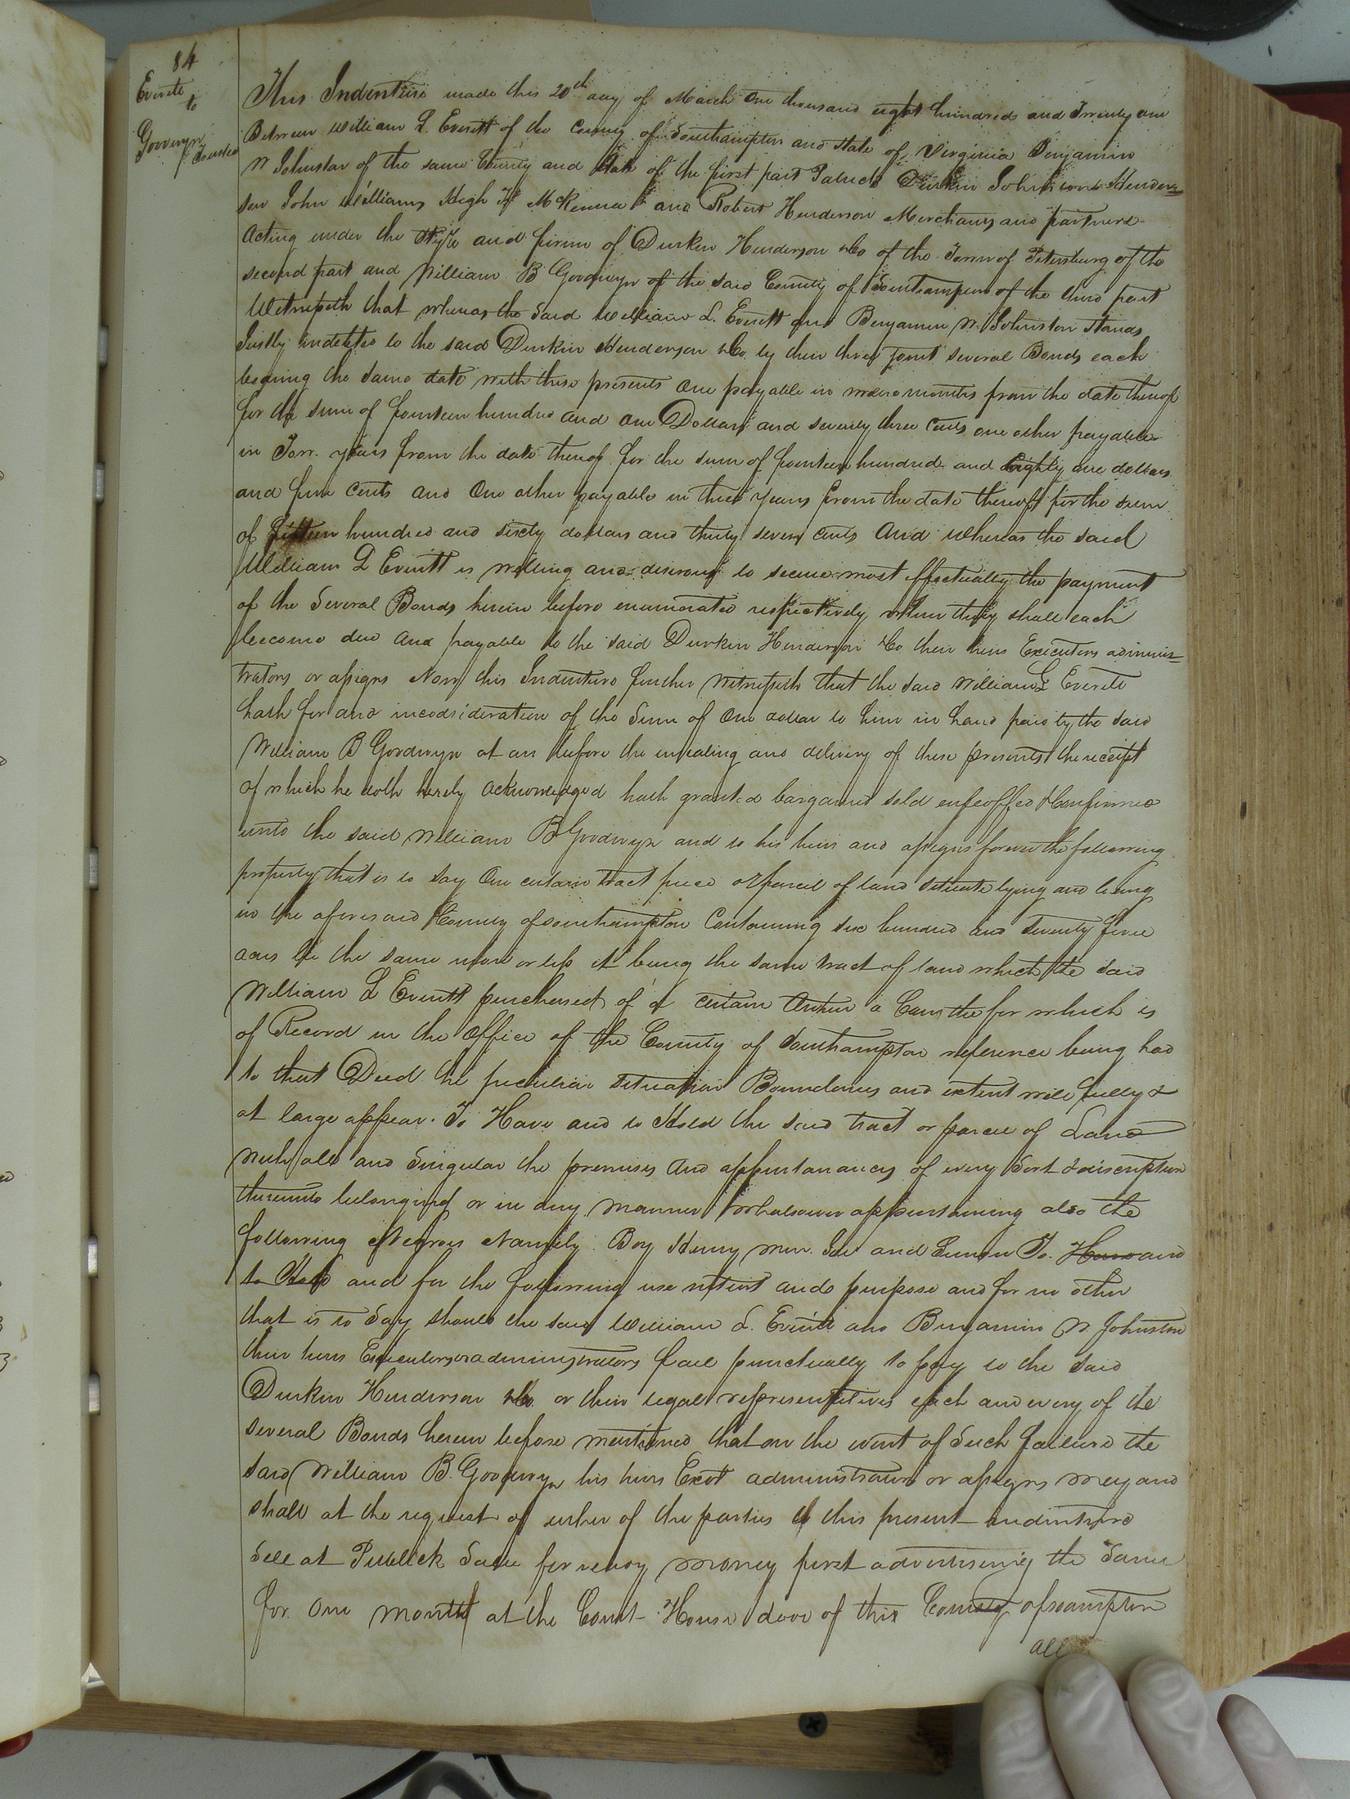 84
Everitt
to
Goodwyn
Trustee
This Indenture made this 20th day of March One thousand eight hundred and Twenty one
Between William L. Everitt of the County of Southampton and State of Virginia Benjamin
W Johnston of the same County and State of the first part Patrick Durkin John Hender=
son John Williams Hugh McKenna and Robert Henderson Merchants and partners
Acting under the Style and firm of Durkin Henderson &Co of the Town of Petersburg of the
second part and William B Goodwyn of the said County of Southampton of the third part
Witnesseth that whereas the said William L. Everitt and Benjamin W. Johnston stands
Justly indebted to the said Durkin Henderson &Co. by their three joint several Bonds each
bearing the same date with these presents One payable in months from the date thereof
for the sum of fourteen hundred and one Dollars and seventy three cents one other payable
in Two years from the date thereof for the sum of fourteen hundred and Eighty one dollars
and five cents and One other payable in three years from the date thereof for the sum
of fifteen hundred and sixty dollars and thirty seven cents And whereas the said
William L Everitt is willing and desirous to secure most effectually the payment
of the Several Bonds herein before enumerated respectively when they shall each
become due and payable to the said Durkin Henderson &Co their heirs Executors adminis=
trators or assigns Now this Indenture further Witnesseth that the said William L Everitt
hath for and inconsideration of the Sum of One dollar to him in hand paid by the said
William B Goodwyn at an before the ensealing and delivery of these presents the receipt
of which he doth hereby acknowledged hath granted bargained sold enfeoffed &Confirmed
unto the said William B Goodwyn and to his heirs and assigns forever the following
property that is to say One certain tract piece or parcel of land situate lying and being
in the aforesaid County of Southampton Containing six hundred and seventy five
acres be the same more or less it being the same tract of land which the said
William L Everitt purchased of a certain a for which is
of Record in the Office of the County of Southampton reference being had
to that Deed the peculiar situation Boundaries and extent will fully &
at large appear. To Have and to Hold the said tract or parcel of Land
with all and Singular the premises and appurtanances of every Sort & discription
thereunto belonging or in any manner whatsoever appertaining also the
following Negroes Namely Boy Henry and To Have and
to Hold and for the following use intent and purpose and for no other
that is to Say should the said William L. Everitt and Benjamin W Johnston
their heirs Executors or administrators fail punctually to pay to the said
Durkin Henderson &Co. or their legal representatives each and every of the
several Bonds herein before mentioned that on the event of Such failure the
said William B. Goodwyn his heirs Exors administrators or assigns may and
shall at the request of either of the parties to this present indenture
Sell at Publick Sale for ready money first advertising the Same
for One month at the Court House door of this County of
all